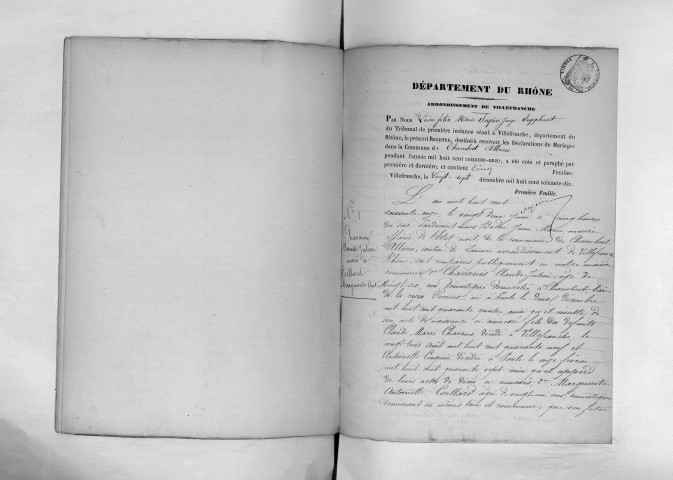 DÉPARTEMENT DU RHÔNE
ARRONDISSEMENT DE VILLEFRANCHE
PAR NOUS Marie Sapin Juge Suppléant
du Tribunal de première instance séant à Villefranche, département du
Rhône, le présent REGISTRE, destiné à recevoir les Déclarations de Mariages
dans la Commune de Chambost Allières
pendant l'année mil huit cent soixante-onze, a été coté et paraphé par
première et dernière, et contient cinq Feuilles.
Villefranche, le vingt sept décembre mil huit cent soixante-dix.
Première Feuille.
N° 1
Chavanis
Claude Julien
marié à
Coillard
Marguerite Ant.
L'an mil huit cent
soixante onze, le vingt deux juin à cinq heures
du soir Pardevant nous Jean Marie, maire
officier de l'Etat civil de la commune de Chambost
Allières, canton de Lamure arrondissement de Villefranche
Rhône, ont comparu publiquement en notre maison
commune 1° Chavanis Claude Julien, âgé de
vingt six ans domestique domicilié à Chambost lieu
de la croix né à le deux décembre
mil huit cent quarante quatre, ainsi qu'il résulte de
son acte de naissance ci annexé fils des défunts
Claude Marie Chavanis décédé à Villefranche, le
vingt trois août mil huit cent quarante neuf et
Antoinette décédée à le onze février
mil huit cent quarante sept ainsi qu'il appert
de leurs actes de décès ci annexés, 2° Marguerite
Antoinette Coillard âgée de vingt un ans domestique
demeurant au même lieu et commune, que son futur